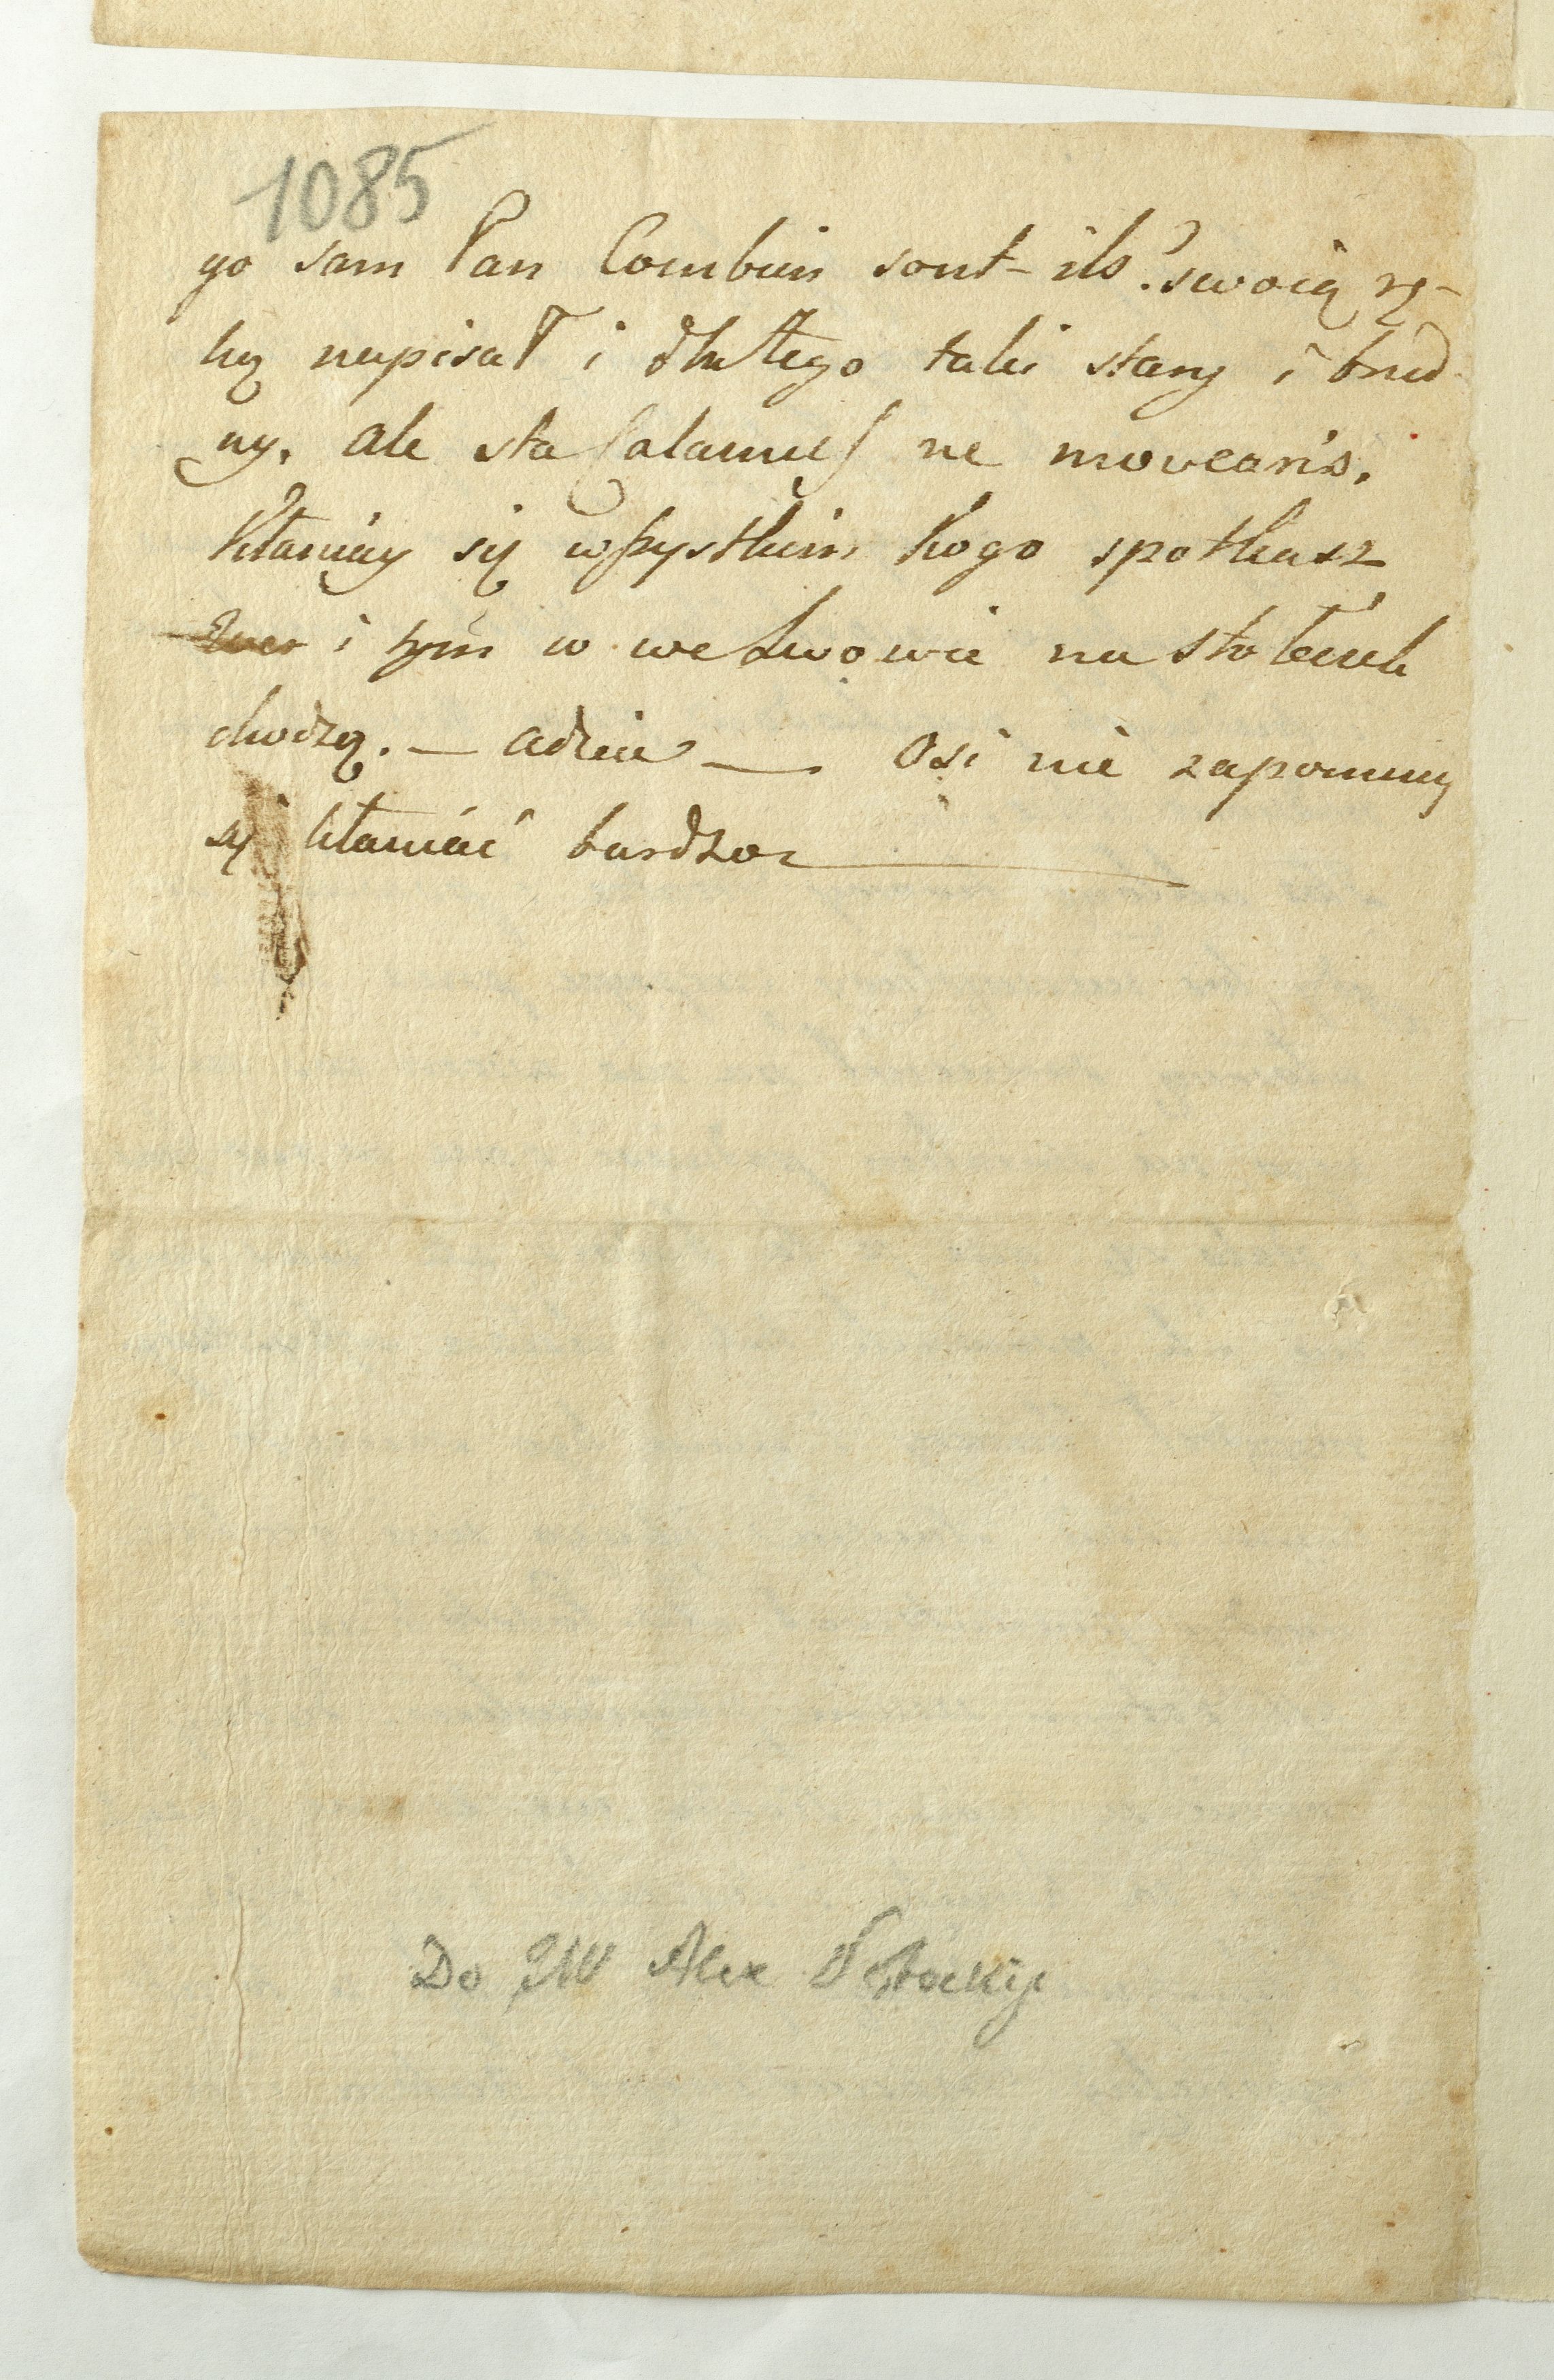 1085
go sam Pan Combien sont-ils? swoią rę-
ką napisał i dla tego taki stary i brud-
ny. ale sta ne
Kłaniay się wszystkim kogo spotkasz
i tym w we Lwowie na stołeach
chodzą. — adieu — Osi nie zapomniy
się kłaniać bardzo
Do JW Alex Potockiy